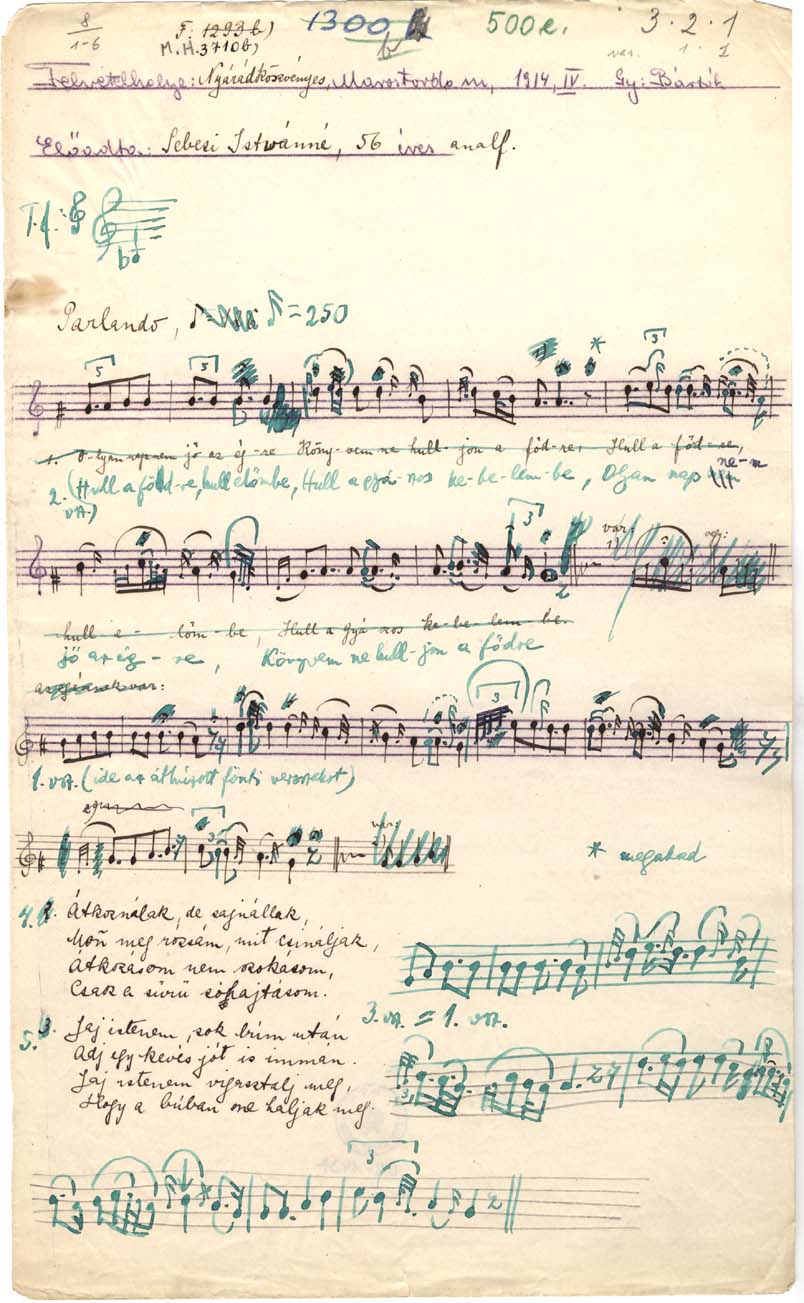 8 F. 1293 b) 1300 500 e. 3 · 2 · 1
1-6 M.H.3710b) b var. 1 · 1
Felvétel helye: Nyárádköszvényes, Marostorda m, 1914, IV. Gy: Bartók
Előadta: Sebesi Istvánné, 56 éves analf.
T.f.:
Parlando, = 250
5 3 * 3
1. Olyan nap nem jő az ég-re Köny-vem ne hull-jon a föd-re, Hull a föd-re,
2. (Hull a föld-re, hull előmbe, Hull a gyá-szos ke-be-lem-be, Olyan nap ne-m
vsz.)
3 var:
1)
hull e-lőm-be, Hull a gyá-szos ke-be-lem-be.
jő az ég-re, Könyvem ne hull-jon a fődre
var:
3
1. vsz. (ide az áthúzott fönti versszakot)
3
* megakad
4. 2. Átkoználak, de sajnállak,
Mon meg rózsám, mit csináljak,
Átkozásom nem szokásom,
Csak a sűrű sóhajtásom.
3. vsz. = 1. vsz.
5. 3. Jaj istenem, sok búm után
Adj egy kevés jót is immán.
Jaj istenem vigasztalj meg,
Hogy a búban ne haljak meg.
3
*